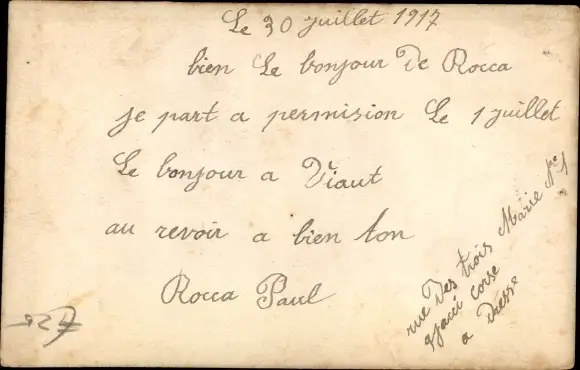 Le 30 juillet 1917
bien Le bonjour De Rocca
je part a permision Le 1 juillet
Le bonjour a Viaut
au revoir a bien ton
Rocca Paul
rue Des trois Marie No 1
ajacci corse
a Dresse